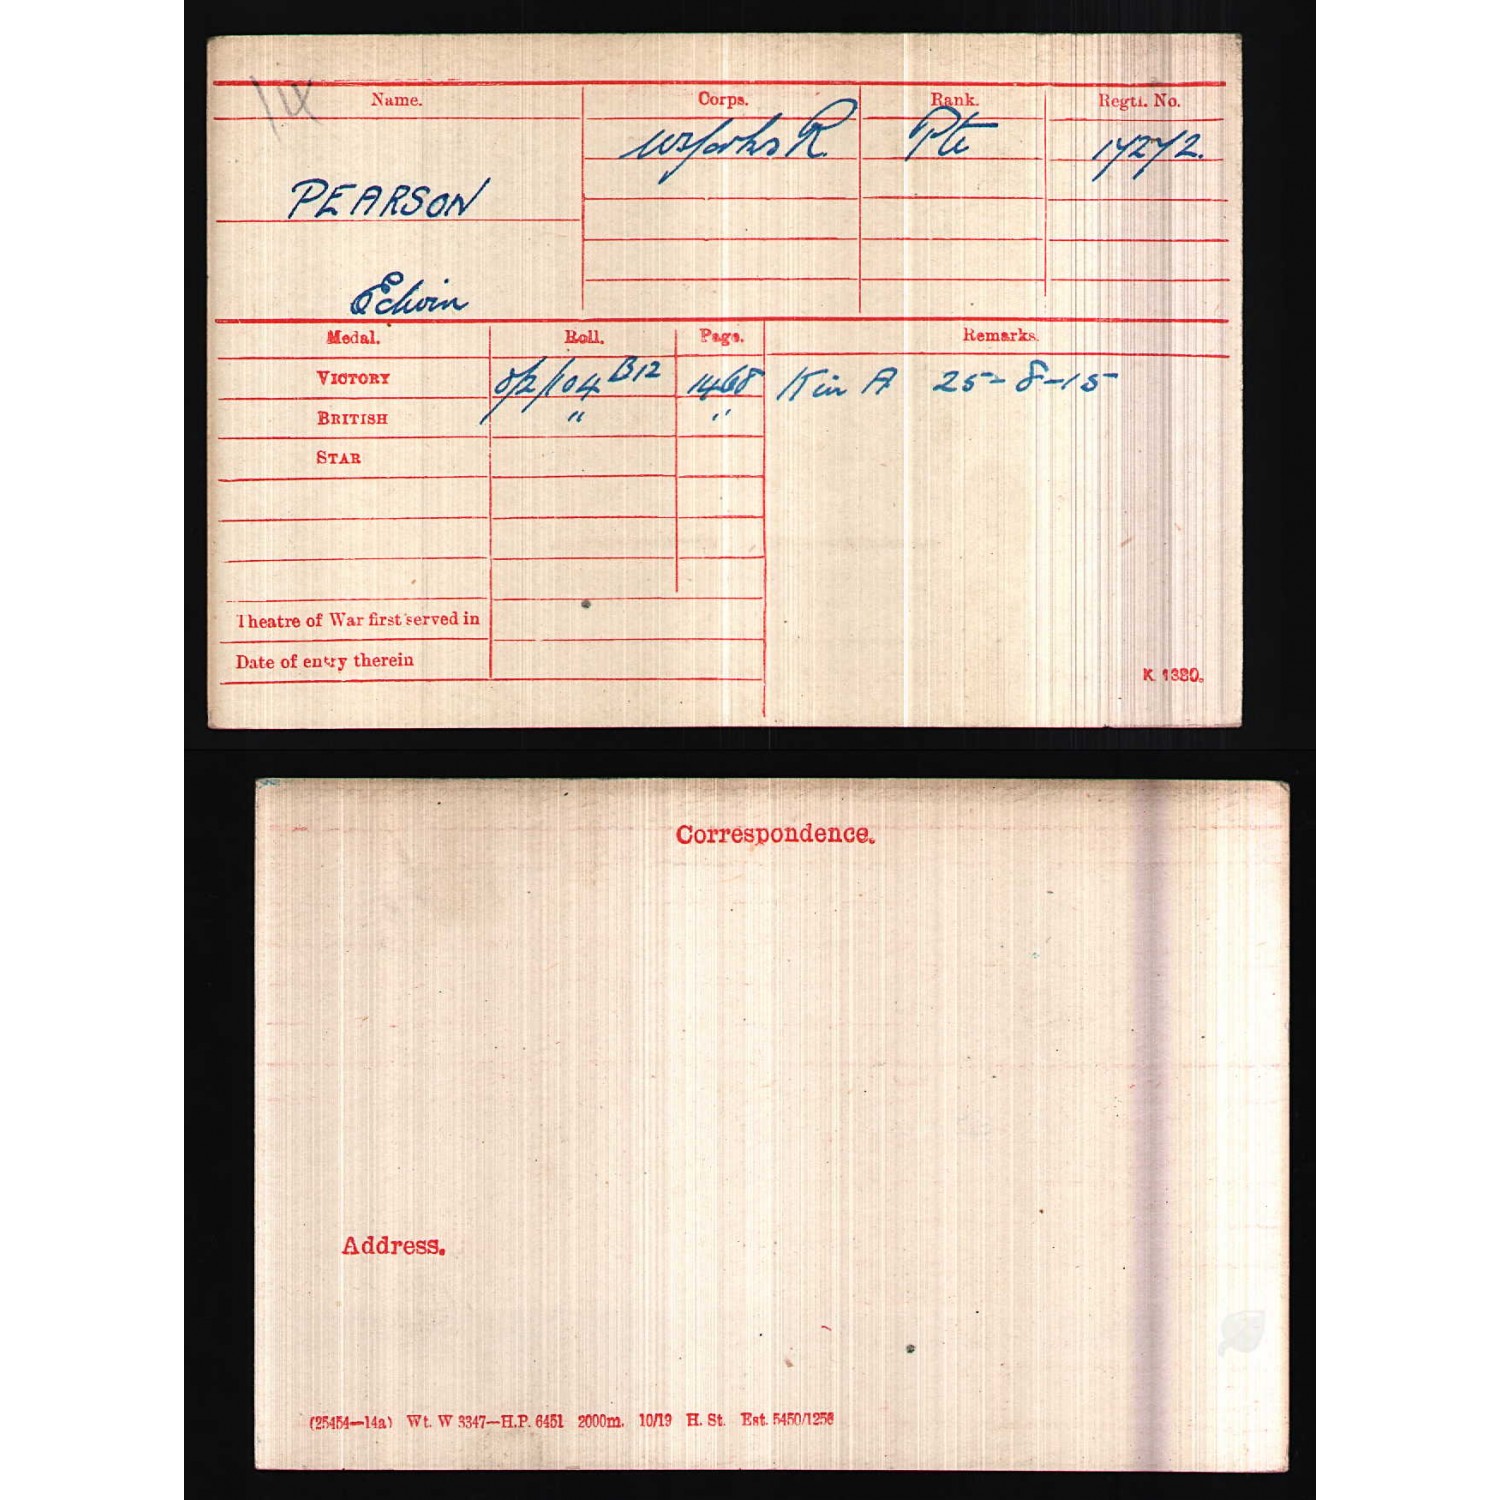 14
Name. Corps. Rank. Regtl. No.
W Yorks R Pte 17272.
PEARSON
Edwin
Medal. Roll. Page. Remarks.
VICTORY O/2/104 B12 1468 K in A 25-8-15
BRITISH " "
STAR
Theatre of War first served in
Date of entry therein
K 1380.
Correspondence.
Address.
(25454—14a) Wt. W 3347—H.P. 6451 2000m. 10/19 H. St. Est. 5450/1256